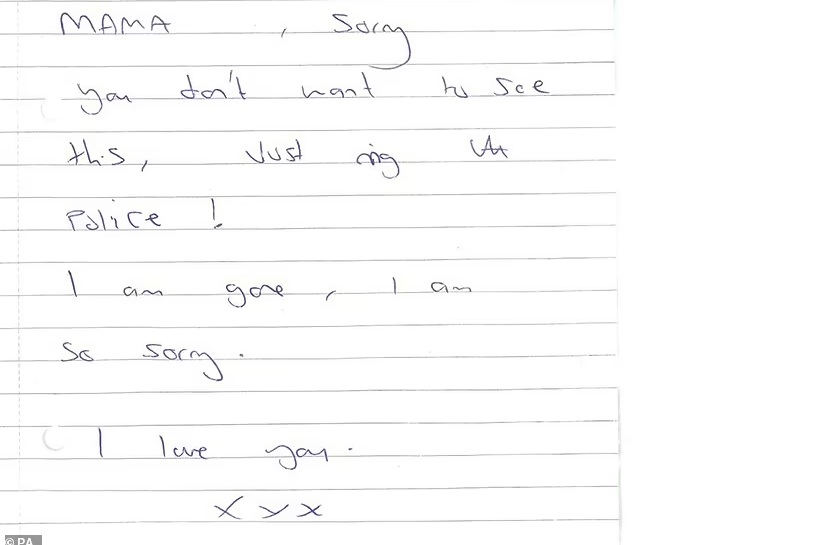 MAMA , Sorry
you don't want to see
this, Just ring the
Police !
I am gone, I am
so sorry.
I love you.
x x x
© PA